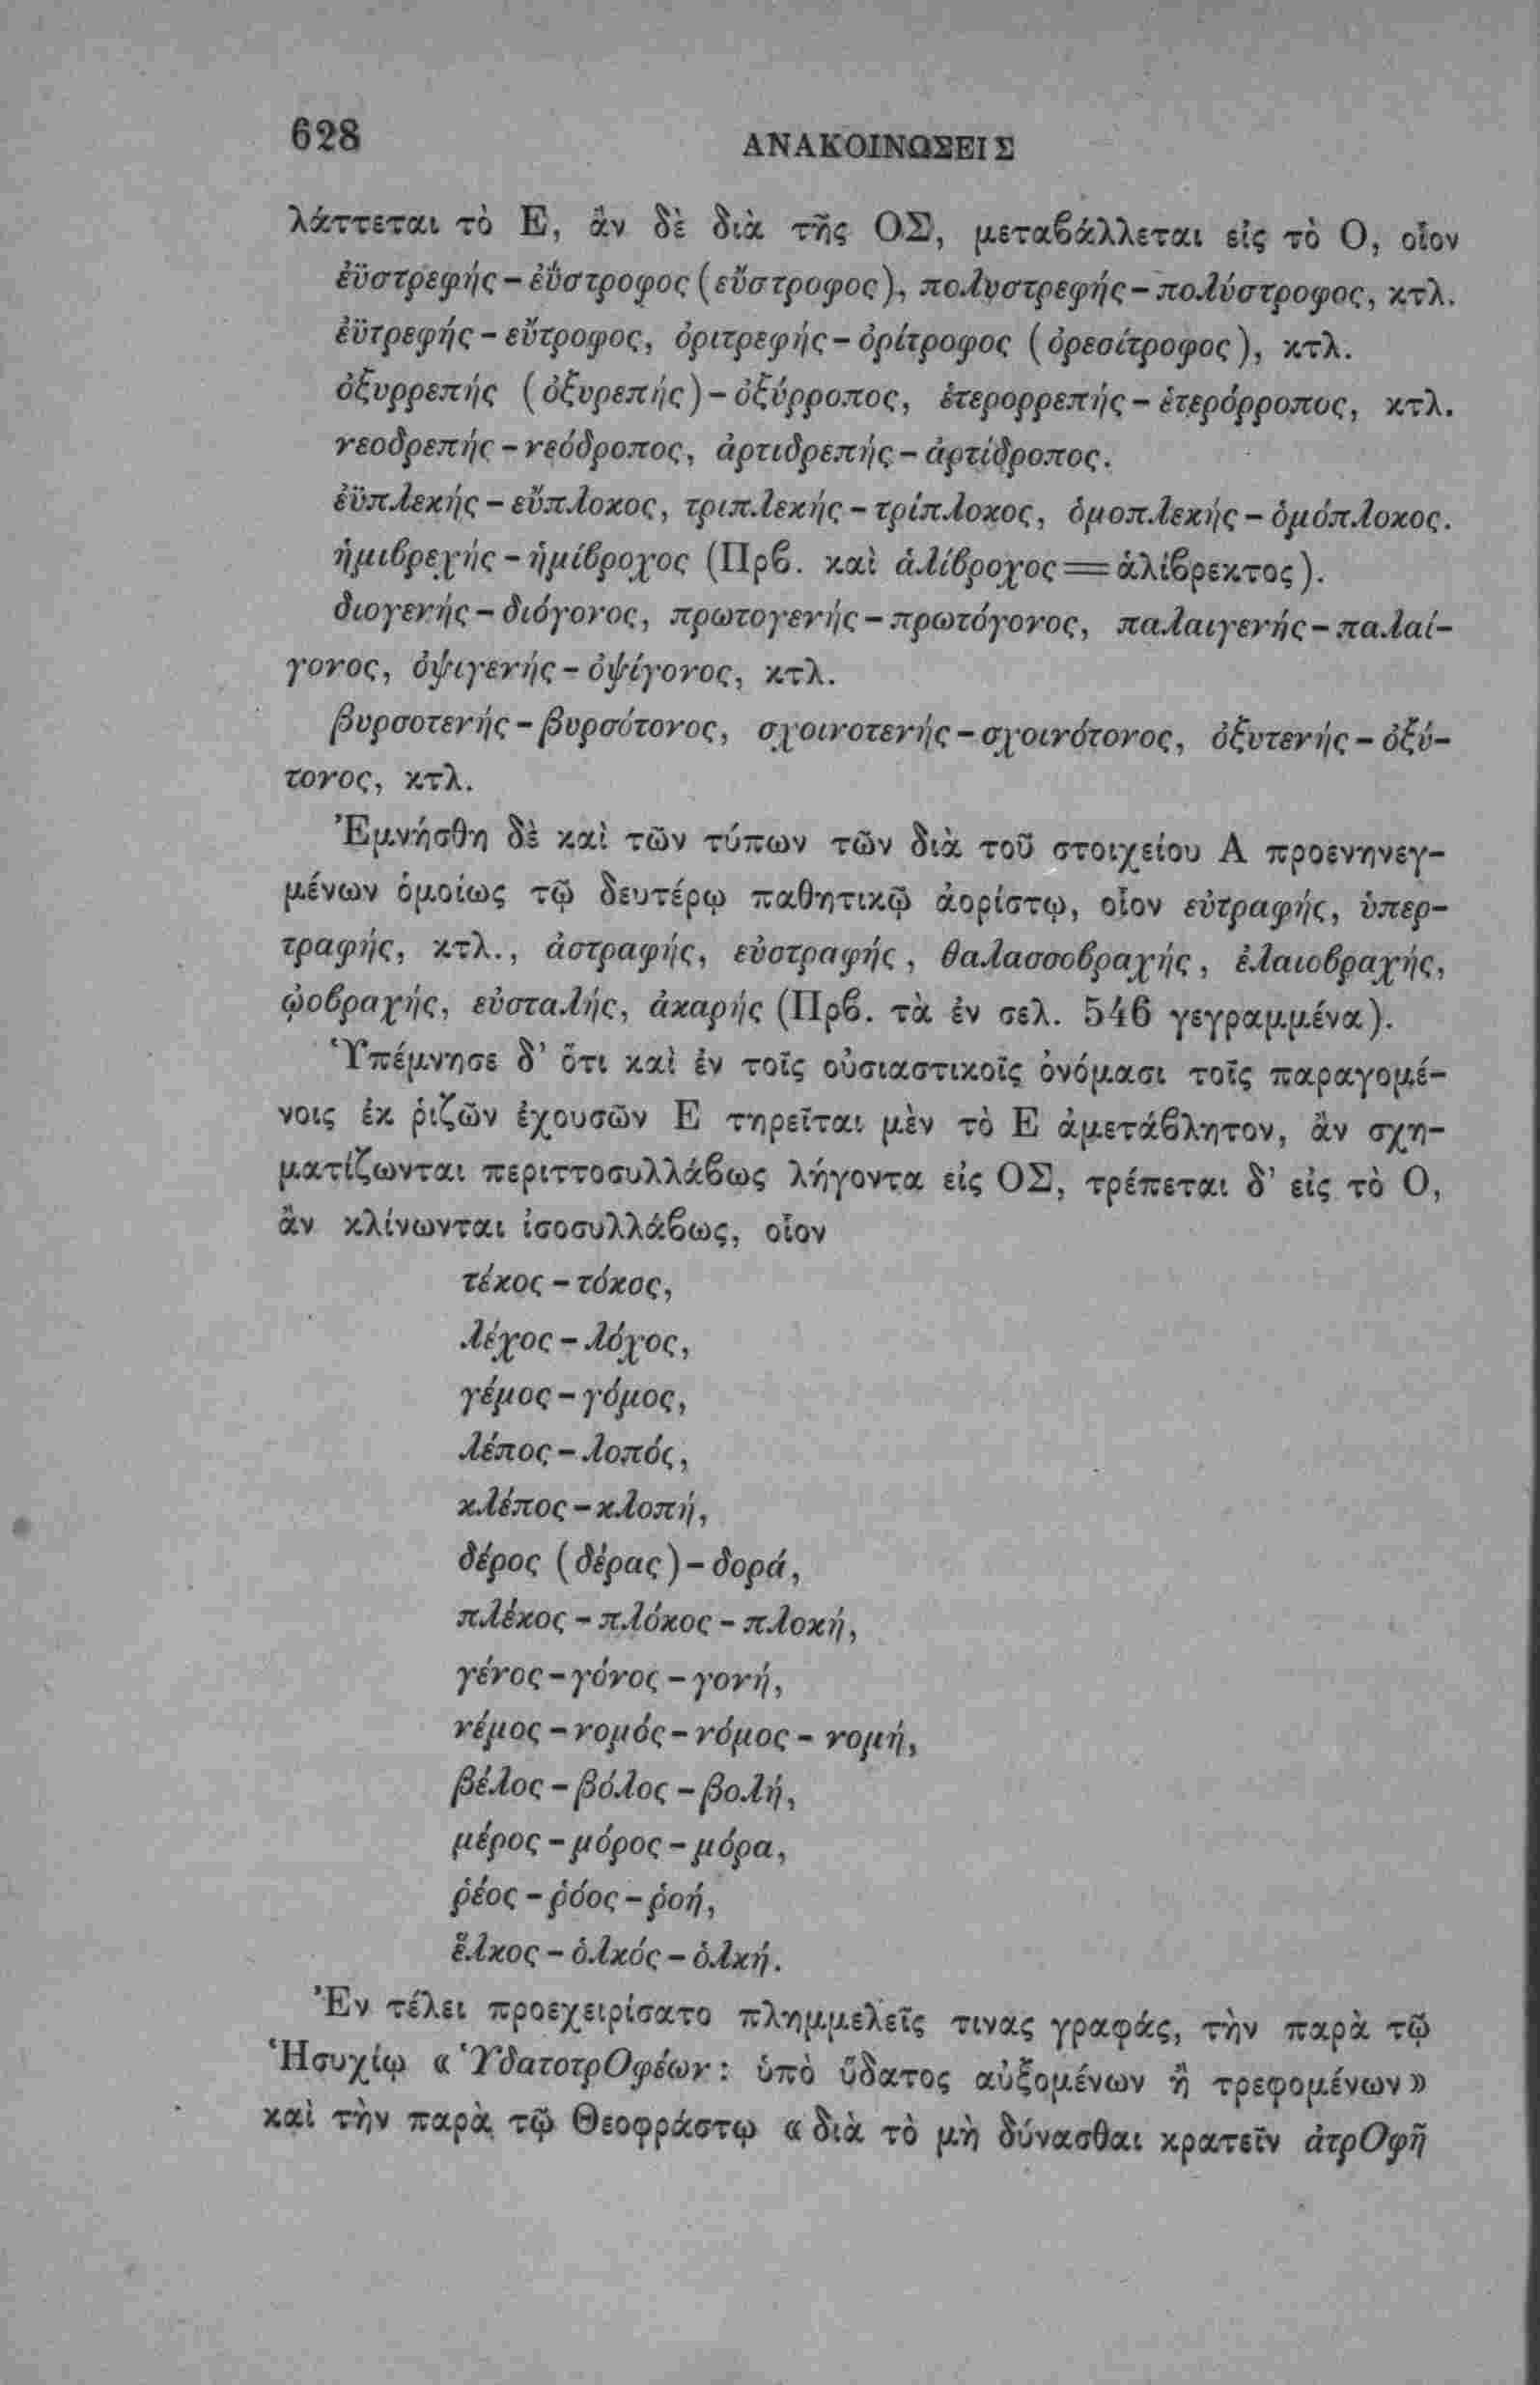 628 ΑΝΑΚΟΙΝΩΣΕΙΣ
λάττεται τὸ Ε, ἂν δὲ διὰ τῆς ΟΣ, μεταβάλλεται εἰς τὸ Ο, οἷον
ἐϋστρεφής – ἐΰστροφος (εὔστροφος), πολυστρεφής – πολύστροφος, κτλ.
ἐϋτρεφής – εὔτροφος, ὀριτρεφής – ὀρίτροφος (ὀρεσίτροφος), κτλ.
ὀξυρρεπής (ὀξυρεπής) – ὀξύρροπος, ἑτερορρεπής – ἑτερόρροπος, κτλ.
νεοδρεπής – νεόδροπος, ἀρτιδρεπής – ἀρτίδροπος.
ἐϋπλεκής – εὔπλοκος, τριπλεκής – τρίπλοκος, ὁμοπλεκής – ὁμόπλοκος.
ἡμιβρεχής – ἡμίβροχος (Πρβ. καὶ ἁλίβροχος = ἁλίβρεκτος).
διογενής – διόγονος, πρωτογενής – πρωτόγονος, παλαιγενής – παλαί-
γονος, ὀψιγενής – ὀψίγονος, κτλ.
βυρσοτενής – βυρσότονος, σχοινοτενής – σχοινότονος, ὀξυτενής – ὀξύ-
τονος, κτλ.
Ἐμνήσθη δὲ καὶ τῶν τύπων τῶν διὰ τοῦ στοιχείου Α προενηνεγ-
μένων ὁμοίως τῷ δευτέρῳ παθητικῷ ἀορίστῳ, οἷον εὐτραφής, ὑπερ-
τραφής, κτλ., ἀστραφής, εὐστραφής, θαλασσοβραχής, ἐλαιοβραχής,
ᾠοβραχής, εὐσταλής, ἀκαρής (Πρβ. τὰ ἐν σελ. 546 γεγραμμένα).
Ὑπέμνησε δ’ ὅτι καὶ ἐν τοῖς οὐσιαστικοῖς ὀνόμασι τοῖς παραγομέ-
νοις ἐκ ῥιζῶν ἐχουσῶν Ε τηρεῖται μὲν τὸ Ε ἀμετάβλητον, ἂν σχη-
ματίζωνται περιττοσυλλάβως λήγοντα εἰς ΟΣ, τρέπεται δ’ εἰς τὸ Ο,
ἂν κλίνωνται ἰσοσυλλάβως, οἷον
τέκος – τόκος,
λέχος – λόχος,
γέμος – γόμος,
λέπος – λοπός,
κλέπος – κλοπή,
δέρος (δέρας) – δορά,
πλέκος – πλόκος – πλοκή,
γένος – γόνος – γονή,
νέμος – νομός – νόμος – νομή,
βέλος – βόλος – βολή,
μέρος – μόρος – μόρα,
ῥέος – ῥόος – ῥοή,
ἕλκος – ὁλκός – ὁλκή.
Ἐν τέλει προεχειρίσατο πλημμελεῖς τινας γραφάς, τὴν παρὰ τῷ
Ἡσυχίῳ « ὙδατοτρΟφέων : ὑπὸ ὕδατος αὐξομένων ἢ τρεφομένων »
καὶ τὴν παρὰ τῷ Θεοφράστῳ « διὰ τὸ μὴ δύνασθαι κρατεῖν ἀτρΟφῆ